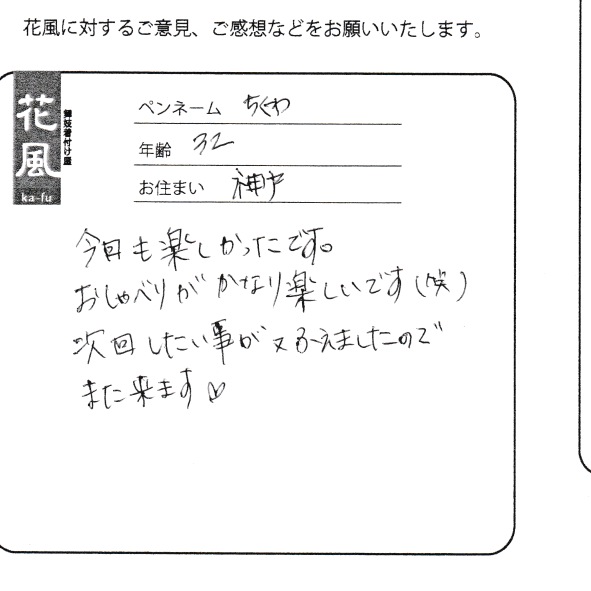 花風に対するご意見、ご感想などをお願いいたします。
花風
舞妓着付け屋
ka-fu
ペンネーム ちくわ
年齢 32
お住まい 神戸
今日も楽しかったです。
おしゃべりがかなり楽しいです(笑)
次回したい事が又ふえましたので
また来ます♡